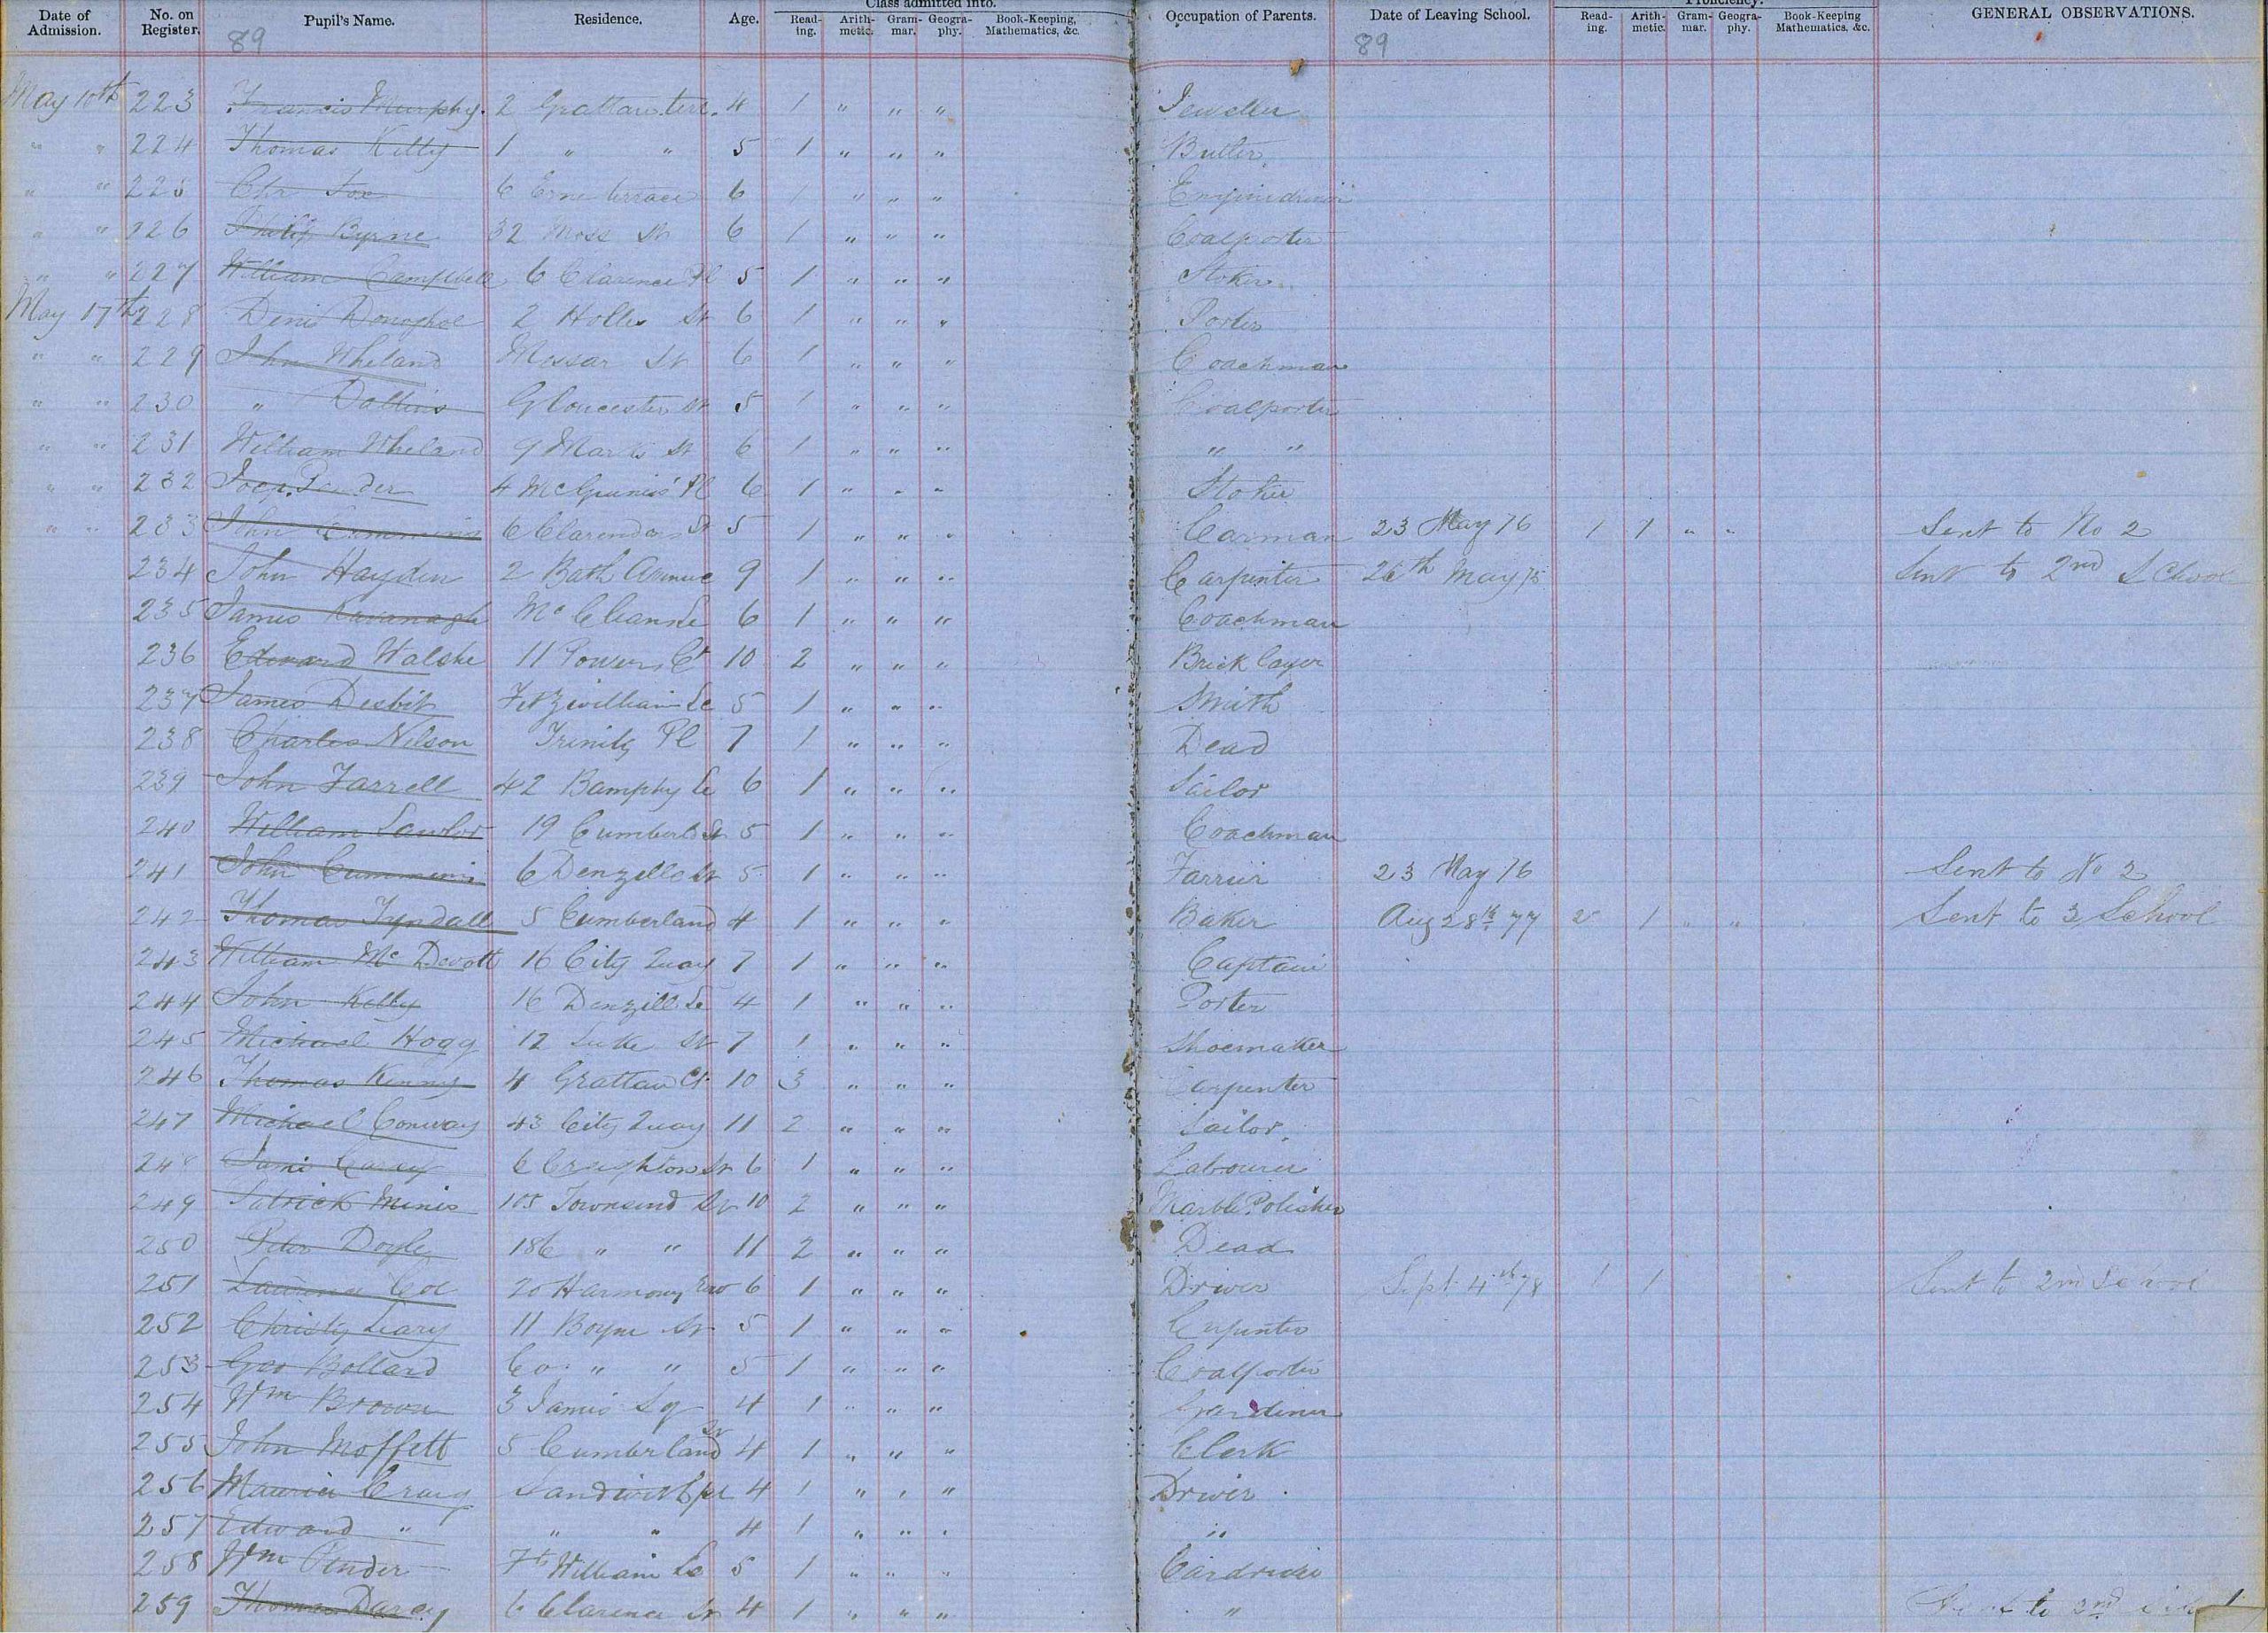 Date of Admission. No. on Register. Pupil's Name. Residence. Age. Class admitted into. Read-ing. Arith-metic. Gram-mar. Geogra-phy. Book-Keeping, Mathematics, &c. Occupation of Parents. Date of Leaving School. Proficiency. Read-ing. Arith-metic. Gram-mar. Geogra-phy. Book-Keeping Mathematics, &c. GENERAL OBSERVATIONS.
89 89
May 10th 223 Francis Murphy. 2 Grattan terr. 4 1 " " " Jeweller
" " 224 Thomas Kelly 1 " " 5 1 " " " Butler
" " 225 Chr Fox 6 Erne terrace 6 1 " " " Enginedriver
" " 226 Philip Byrne 32 Moss St 6 1 " " " Coalporter
" " 227 William Campbell 6 Clarence Pl 5 1 " " " Stoker
May 17th 228 Denis Donoghoe 2 Holles St 6 1 " " " Porter
" " 229 John Wheland St 6 1 " " " Coachman
" " 230 " Gloucester St 5 1 " " " Coalporter
" " 231 William Wheland 9 Marks St 6 1 " " " " "
" " 232 4 Pl 6 1 " " " Stoker
" " 233 John Cummins 6 Clarendon St 5 1 " " " Carman 23 May 76 1 1 " " Sent to No 2
234 John Hayden 2 Bath Avenue 9 1 " " " Carpenter 26th May 75 Sent to 2nd School
235 James Kavanagh 6 1 " " " Coachman
236 Edward Walshe 11 Powers Ct 10 2 " " " Brick layer
237 James Fitzwilliam La 5 1 " " " Smith
238 Charles Nelson Trinity Pl 7 1 " " " Dead
239 John Farrell 42 La 6 1 " " " Sailor
240 William Lawlor 19 Cumberld St 5 1 " " " Coachman
241 John Cummins 6 Denzille St 5 1 " " " Farrier 23 May 76 Sent to No 2
242 Thomas Tyndall 5 Cumberland 4 1 " " " Baker Aug 28th 77 2 1 " " Sent to 3 School
243 William Mc Devott 16 City Quay 7 1 " " " Captain
244 John Kelly 16 Denzill La 4 1 " " " Porter
245 Michael Hogg 12 Luke St 7 1 " " " Shoemaker
246 Thomas Kenny 4 Grattan Ct 10 3 " " " Carpenter
247 Michael Conway 43 City Quay 11 2 " " " Sailor.
248 6 Creighton St 6 1 " " " Labourer
249 Patrick Minis 105 Townsend St 10 2 " " " Marble Polisher
250 Peter Doyle 186 " " 11 2 " " " Dead
251 Laurence Coe 20 Harmony row 6 1 " " " Driver Sept 4th 78 1 1 Sent to 2nd School
252 Christy Leary 11 Boyne St 5 1 " " " Carpenter
253 Geo Bollard " " 5 1 " " " Coalporter
254 Wm Brown 3 James Sq 4 1 " " " Gardener
255 John Moffett 5 Cumberland St 4 1 " " " Clerk
256 Maurice Craig Sandwith pl 4 1 " " " Driver
257 Edward " " " 4 1 " " " "
258 Wm Pender Ftz William La 5 1 " " " Cardriver
259 Thomas Darcy 6 Clarence St 4 1 " " " " to 2nd